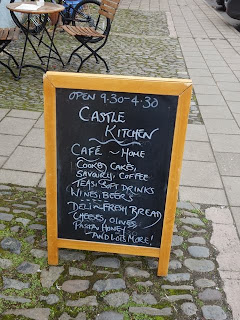 OPEN 9.30-4.30
CASTLE
KITCHEN
CAFÉ ~ HOME
COOKED CAKES,
SAVOURY, COFFEE
TEAS, SOFT DRINKS
WINES, BEERS
DELI ~ FRESH BREAD
CHEESES, OLIVES
PASTA HONEY
~ AND LOTS MORE!